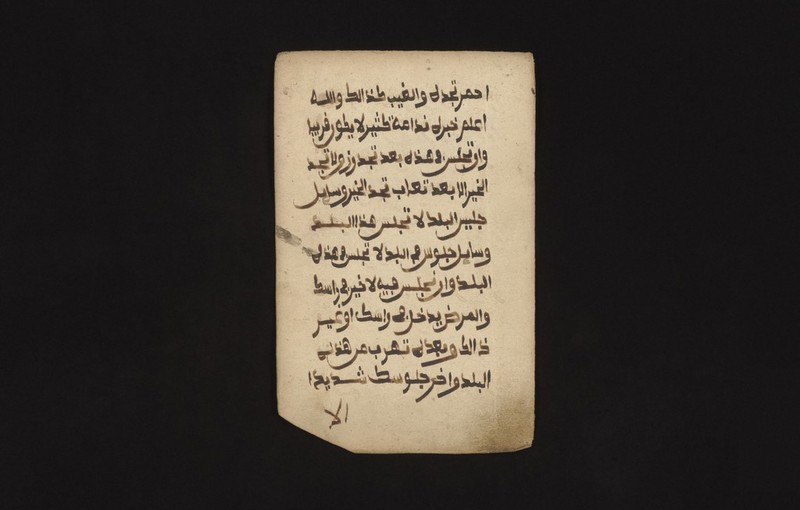 احمر تجدل والغيب كذالك والله
اعلم خبرك ندامة كثير لا يكون قريبا
وان تجلس هذه بعد تجد ولا تجد
الخير الا بعد تعاب تجد الخير وسايل
جليس البلد لا تجلس هذا البلد
وسايل جلوس في البلد لا تجلس في هذه
البلد وان تجلس فيه لا خير في راسك
والمرض يدخل في راسك او غير
ذالك وبعده تهرب من هذه
البلد واخر جلوسك شديدا
الا